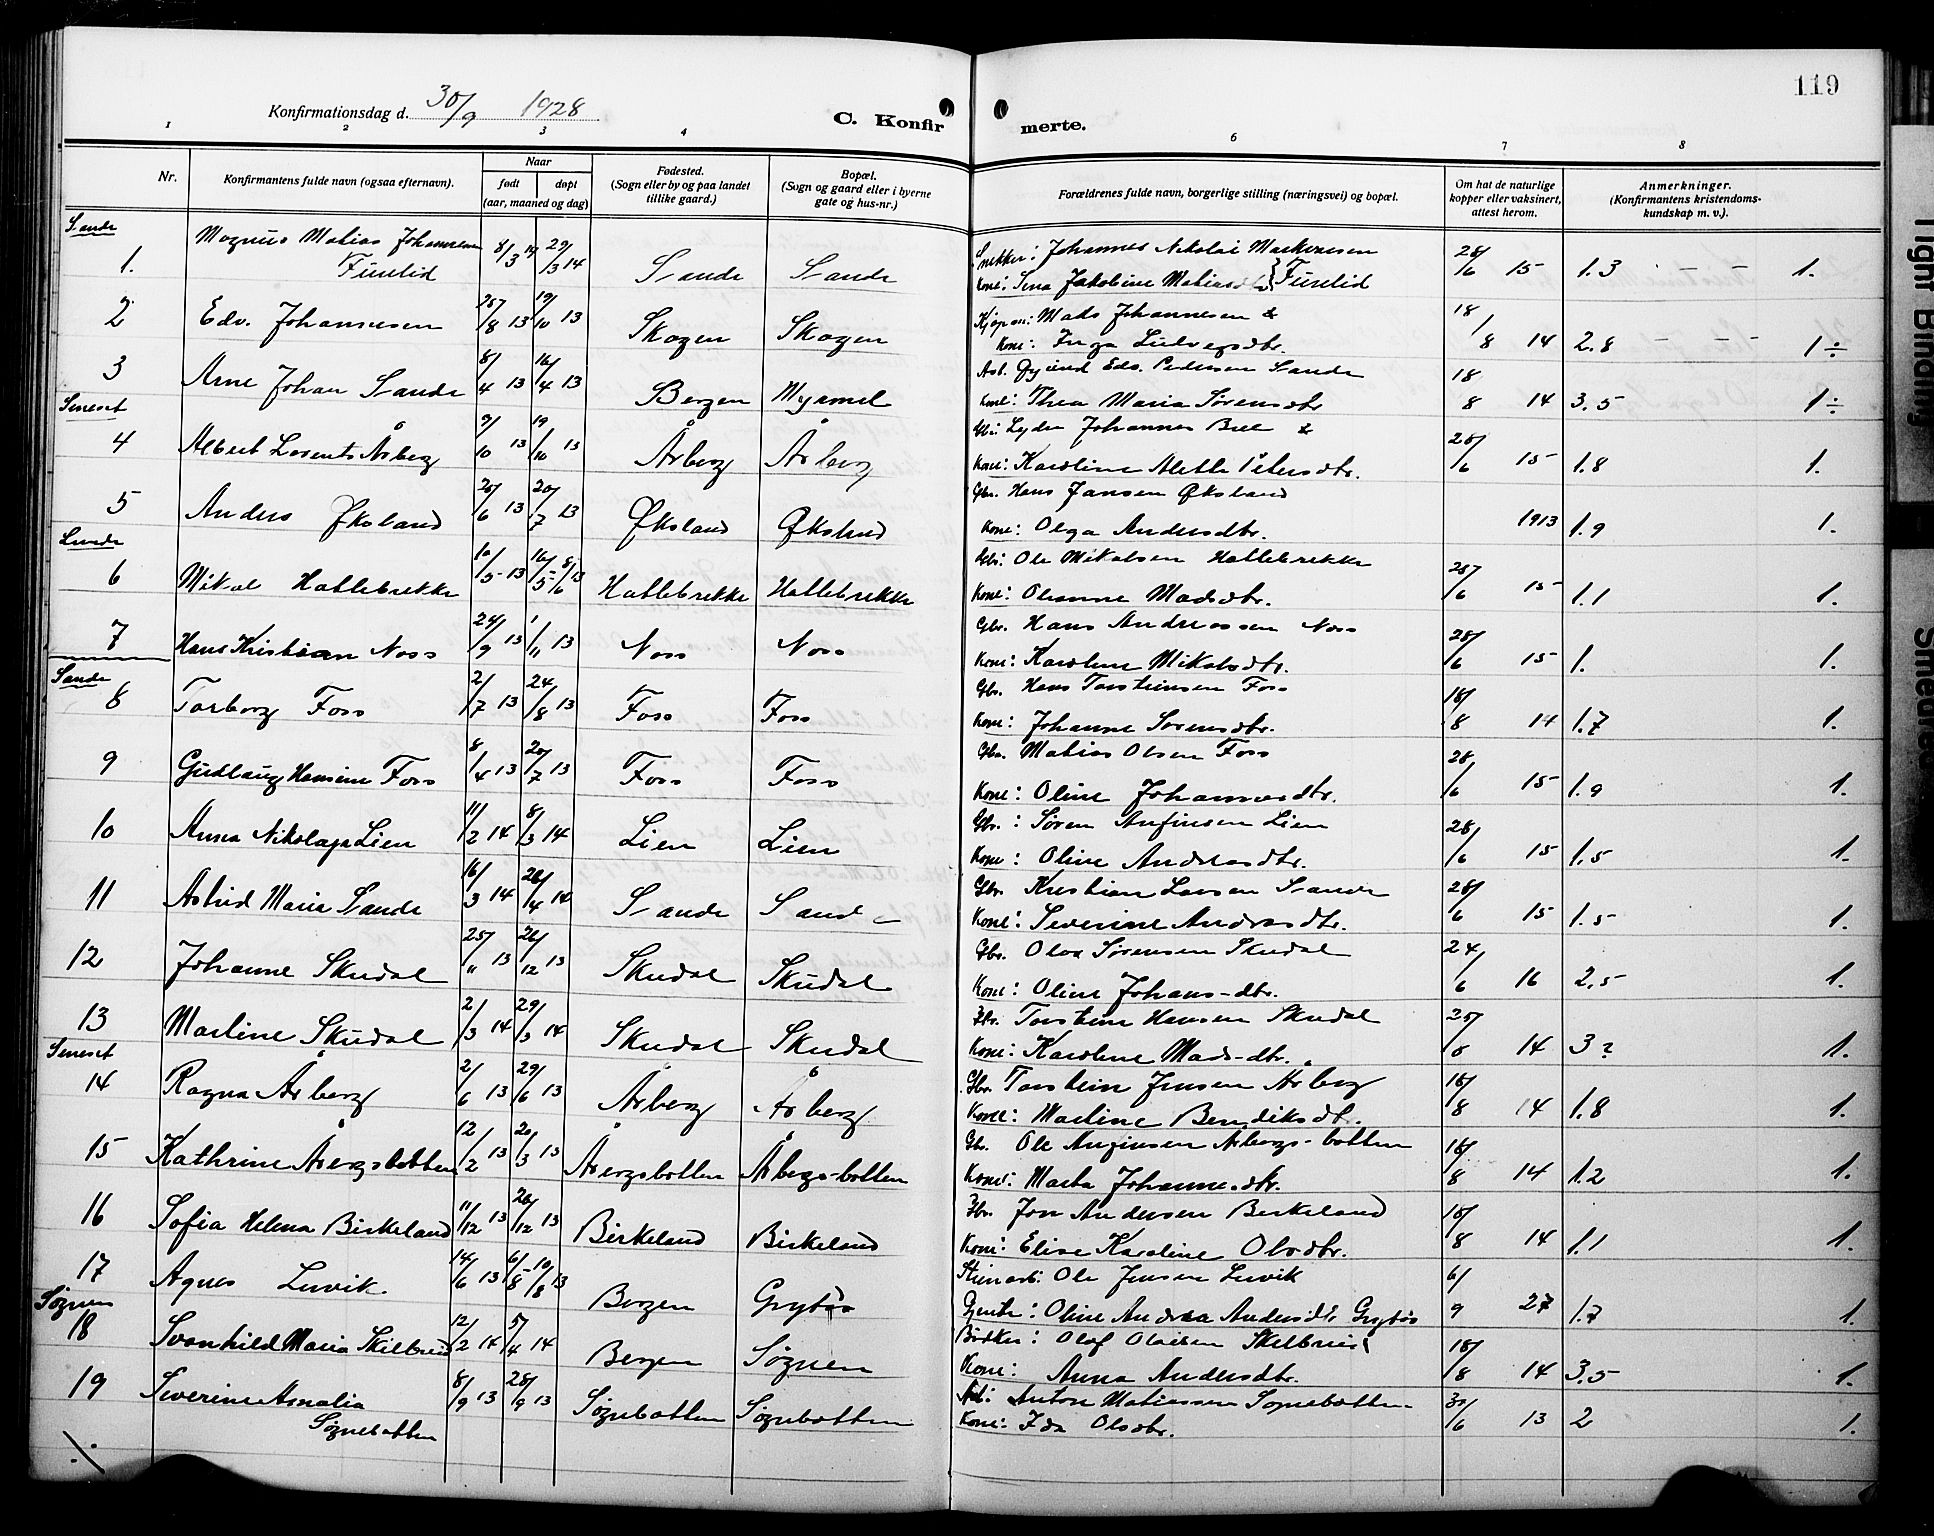 119
Konfirmationsdag d. 30/9 1928
C. Konfirmerte.
1 2 3 4 5 6 7 8
Nr. Konfirmantens fulde navn (ogsaa efternavn). Naar født døpt (aar, maaned og dag) Fødested. (Sogn eller by og paa landet tillike gaard.) Bopæl. (Sogn og gaard eller i byerne gate og hus-nr.) Forældrenes fulde navn, borgerlige stilling (næringsvei) og bopæl. Om hat de naturlige kopper eller vaksinert, attest herom. Anmerkninger. (Konfirmantens kristendoms-kundskap m. v.).
Sande
1. Magnus Matias Johannesen Furelid 8/3 14 29/3 14 Sande Sande Snekker: Johannes Nikolai Markussen
Kone: Sina Jakobine Matiasd. } Furelid 28/6 15 1.3 – – 1.
2 Edv. Johannesen 25/8 13 19/10 13 Skogen Skogen Kjøpm: Mads Johannesen &
Kone: Inga Ludvigsdtr. 18/8 14 2.8 – – 1 ÷
3 Arne Johan Sande 8/4 13 16/4 13 Bergen Myrmel Arb. Øyvind Edv. Pedersen Sande
Kone: Thea Maria Sørensdtr 18 8 14 3.5 1 ÷
Seneset
4 Albert Lorents Årberg 9/10 13 19/10 13 Årberg Årberg Lyder Johannes Bell &
Kone: Karoline Alette Petersdtr. 28/6 15 1.8 1.
5 Anders Øksland 20/6 13 20/7 13 Øksland Øksland Gbr. Hans Jansen Øksland
Kone: Olga Andersdtr. 1913 1.9 1.
Lunde
6 Mikal Hatlebrekke 10/5 13 16/5 8/6 13 Hatlebrekke Hatlebrekke Gbr: Ole Mikalsen Hatlebrekke
Kone: Oleanne Madsdtr. 28/6 15 1.1 1.
7 Hans Kristian Noss 24/9 13 1/11 13 Noss Noss Gbr. Hans Andreassen Noss
Kone: Karoline Mikalsdtr. 28/6 15 1. 1.
Sande
8 Torborg Foss 2/7 13 24/8 13 Foss Foss Gbr. Hans Torsteinsen Foss
Kone: Johanne Sørensdtr. 18/8 14 1.7 1.
9 Gudlaug Hansine Foss 8/4 13 20/7 13 Foss Foss Gbr. Matias Olsen Foss
Kone: Oline Johannesdtr. 28/6 15 1.9 1.
10 Anna Nikolaga Lien 11/2 14 8/3 14 Lien Lien Gbr.: Søren Anfinsen Lien
Kone: Oline Andreasdtr. 28/6 15 1.5 1.
11 Astrid Maria Sande 16/3 14 26/4 14 Sande Sande Gbr. Kristian Larsen Sande
Kone: Severine Andreasdtr. 28/6 15 1.5 1.
12 Johanne Skudal 25/11 13 26/12 13 Skudal Skudal Gbr. Olva Sørensen Skudal
Kone: Oline Johans-dtr. 24/6 16 2.5 1.
13 Martine Skudal 2/3 14 29/3 14 Skudal Skudal Gbr. Torstein Hansen Skudal
Kone: Karoline Mads-dtr. 14 3? 1.
Seneset
14 Ragna Årberg 2/6 13 29/6 13 Årberg Årberg Gbr. Torstein Jensen Årberg
Kone: Martine Bendiksdtr. 18/8 14 1.8 1.
15 Kathrine Åbergsbotten 12/2 13 2/3 13 Åbergsbotten Årbergs-botten Gbr. Ole Anfinsen Arbergs-botten
Kone: Marta Johanne.dtr. 18/8 14 1.2 1.
16 Sofia Helena Birkeland 11/12 13 26/12 13 Birkeland Birkeland Gbr. Jon Andersen Birkeland
Kone: Elise Karoline Olsdtr. 18/8 14 1.1 1.
17 Agnes Lervik. 14/6 13 6/8 – 10/8 13 Bergen Grytøs Stenarb: Ole Jensen Lervik
Gjente: Oline Andrea Andersdtr Grytøs 6/9 27 1.7 1.
Søgnen
18 Svanhild Maria Skilbrei 12/2 14 5/4 14 Bergen Søgnen Bødker: Olaf Olaisen Skilbrei
Kone: Anna Andersdtr. 18/8 14 3.5 1.
19 Severine Amalia Søgnebotten 8/9 13 28/9 13 Søgnebotten Søgnebotten Arb: Anton Matiassen Sognebotten
Kone: Ida Olsdtr. 30/6 13 2 1.
./.
Tight Binding